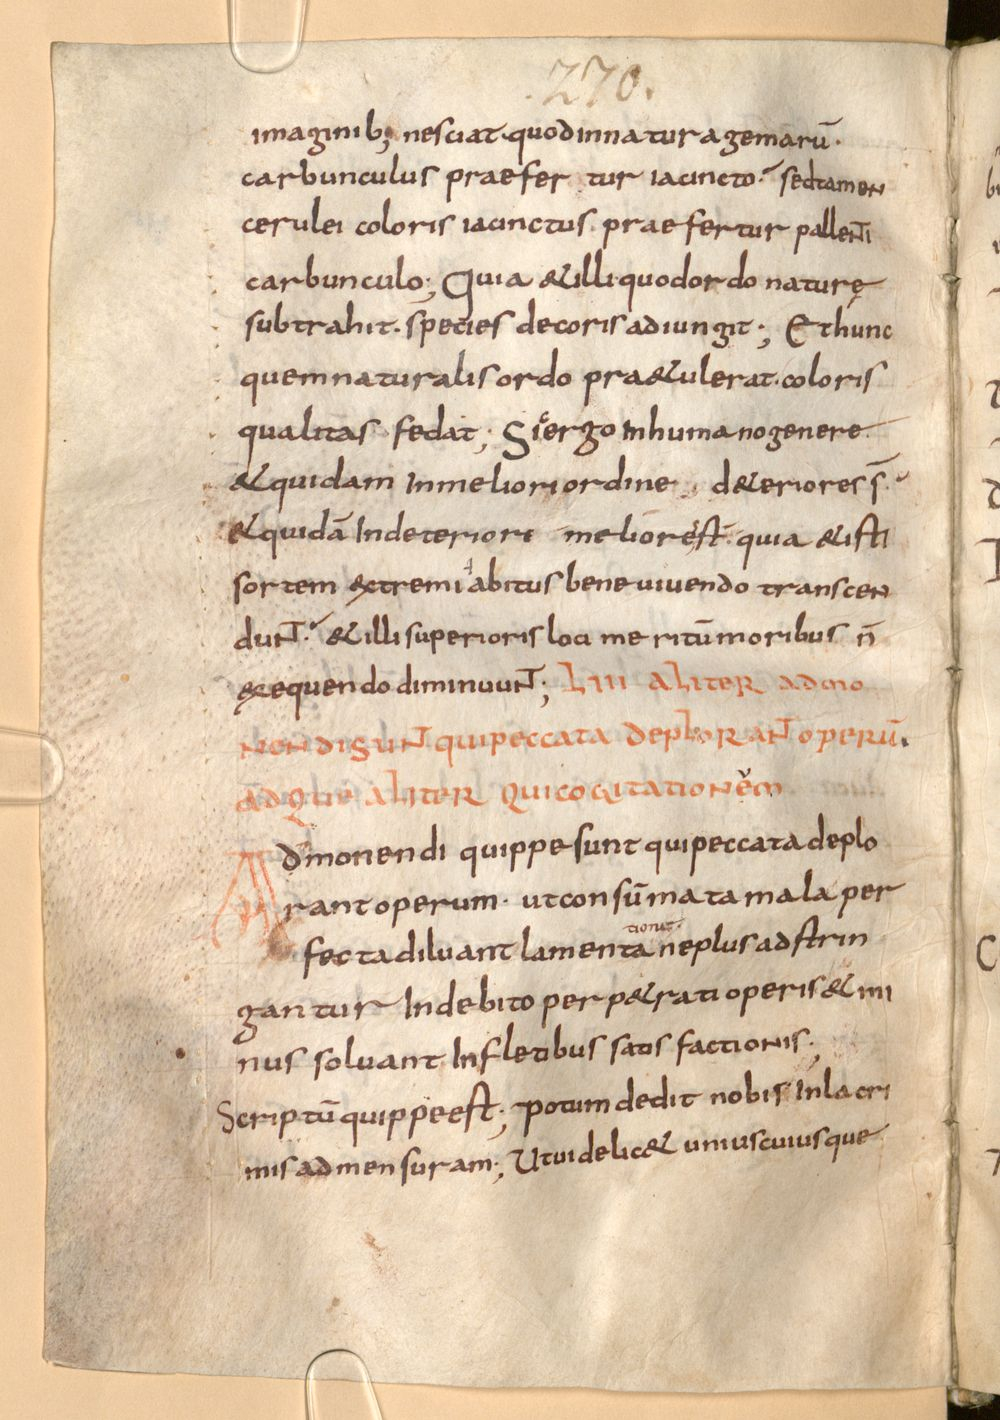 .270.
imaginib; nesciat·quodinnatura gemarū·
carbunculus praefertur iacincto· sedtamen
cerulei coloris iacinctus praefertur pallenti
carbunculo; Quia &illi quodordo naturę
subtrahit· species decoris adiungit; Ethunc
quemnaturalis ordo pra&ulerat·coloris
qualitas fedat; Si ergo inhumano genere
&quidam inmeliori ordine, d&eriores s̄·
&quidā Indeteriori meliores st̄· quia &isti
sortem extremi abitus bene vivendo transcen
dunt· &illi superioris loci meritū moribus n̄
exequendo diminuunt; LIII aliter admo
nendi sunt qui peccata deplorant operū.
adque aliter qui cogitationem
Admonendi quippe sunt qui peccata deplo
rant operum· ut consūmata mala per
fecta diluant lamenta tionis· ne plus adstrin
gantur Indebito perp&rati operis &mi
nus solvant Infletibus satis factionis;
Scriptū quippe est; potum dedit nobis Inlacri
mis ad mensuram; Utuidelic& uniuscuiusque